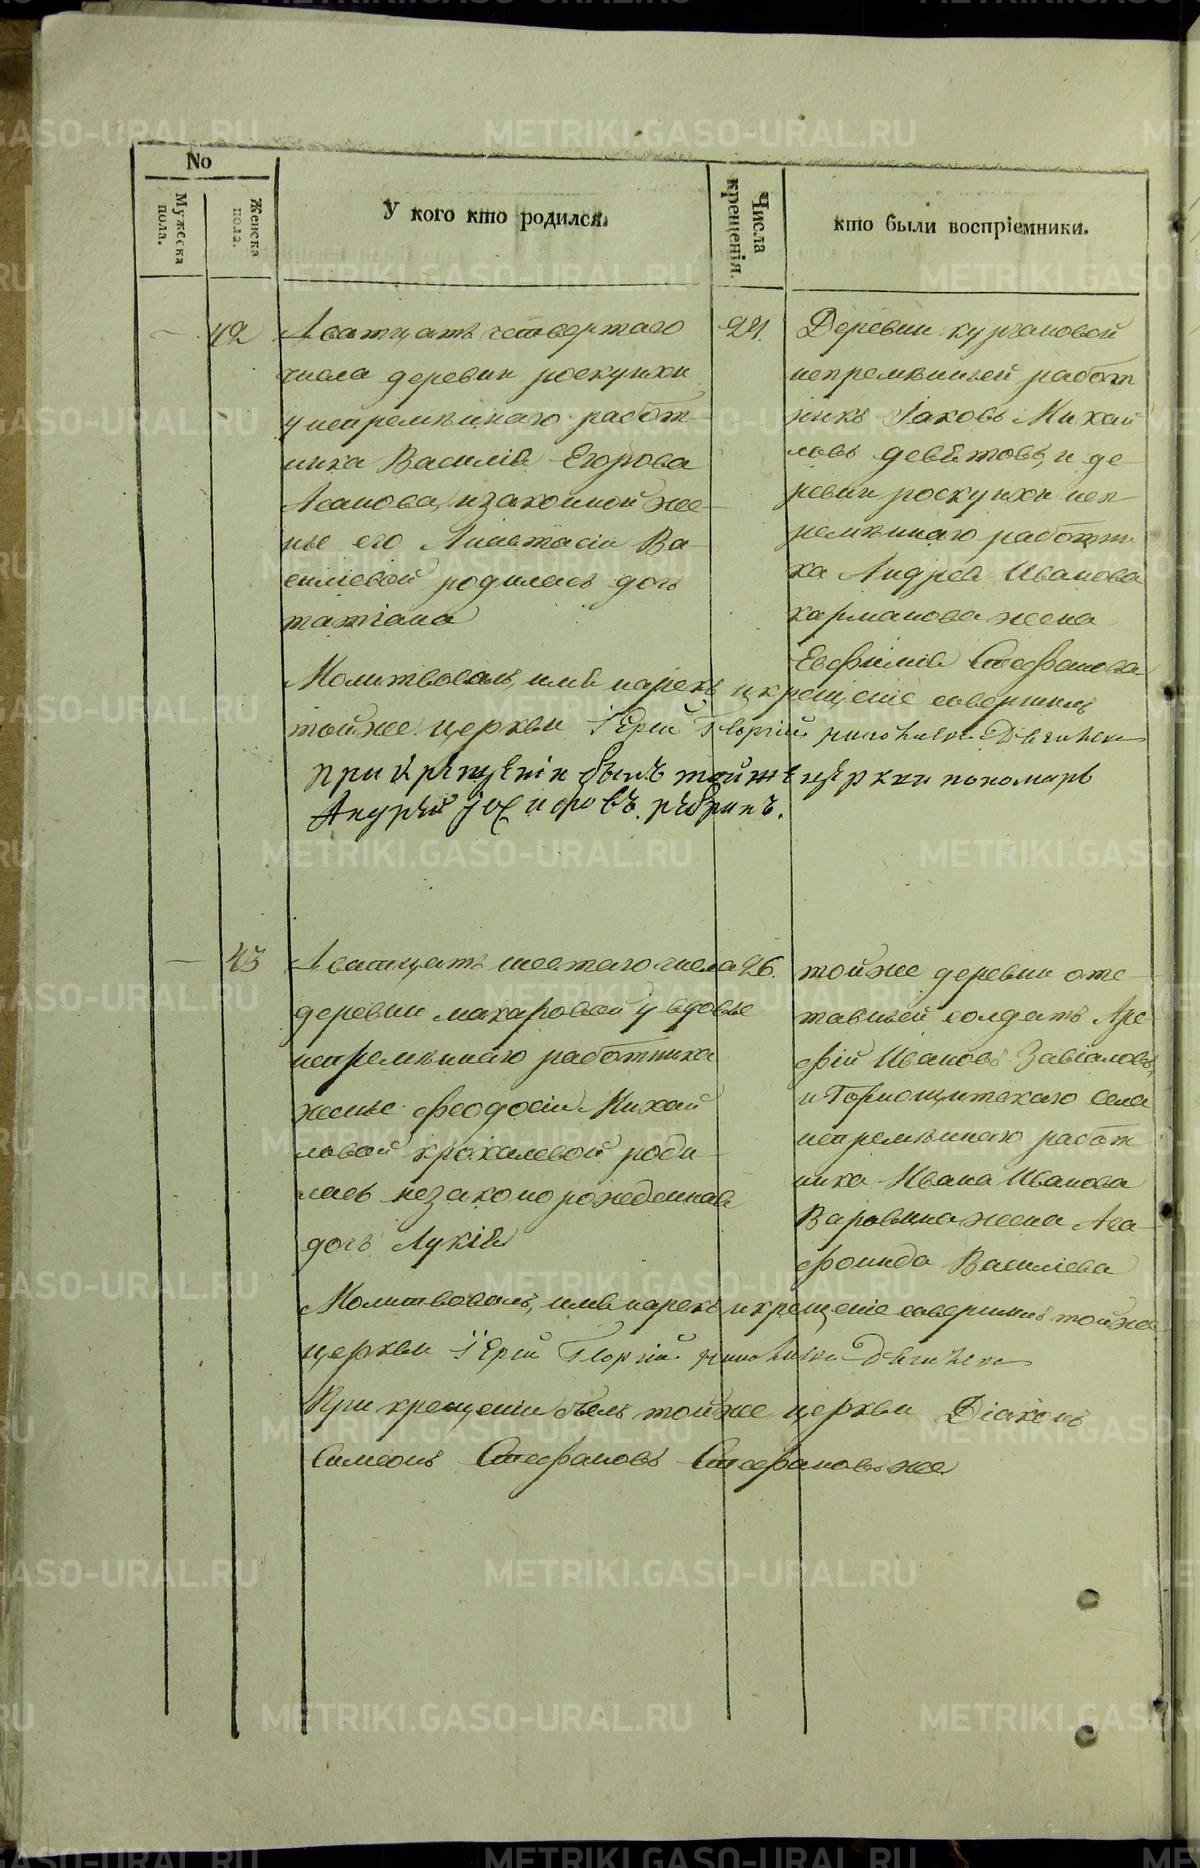 No
Мужеска пола.
Женска пола.
У кого кто родился.
Числа крещенія.
кто были воспріемники.
42
Дватцать четвертаго
числа деревни роскуихи
у непремѣннаго работ-
ника Василія Егорова
Асанова, и законной же-
не его Анастасіи Ва-
силіевой родилась дочь
татіана
24.
Деревни кургановой
непремѣнный работ
никъ Іаковъ Михай
ловъ девятовъ, и де-
ревни роскуихи неп-
ремѣннаго работни
ка Андрея Иванова
карманова жена
Евфимія Стефанова
Молитвовалъ, имя нарекъ и крещеніе совершилъ
тойже церкви Іерей Георгій
при крещеніи былъ тойже церкви пономарь
Андрей
43
Дватцать шестаго числа
деревни макаровой у вдовье
непремѣннаго работника
женые феодосіи Михай
ловой крохалевой роди-
лась незаконорожденная
дочь Лукія
26.
тойже деревни отс-
тавный солдатъ Аре
фій Ивановъ Завіаловъ,
и Горнощитскаго села
непремѣннаго работ
ника Ивана Иванова
Варовина жена Ага-
фоиида Василіева
Молитвовалъ, имя нарекъ и крещеніе совершилъ тойже
церкви Іерей Георгій
При крещеніи былъ тойже церкви Діаконъ
Симеонъ Стефановъ Стефановъ же
METRIKI.GASO-URAL.RU